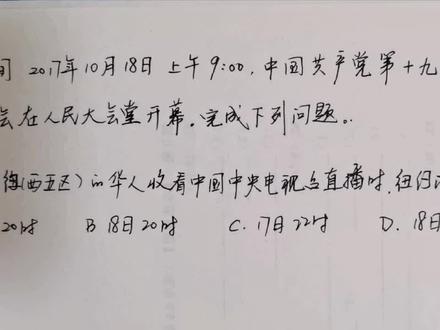 间 2017年10月18日上午9:00,中国共产党第十九
会在人民大会堂开幕。完成下列问题。
(西五区)的华人收看中国中央电视台直播时,纽约
20时 B 18日20时 C. 17日22时 D. 18日